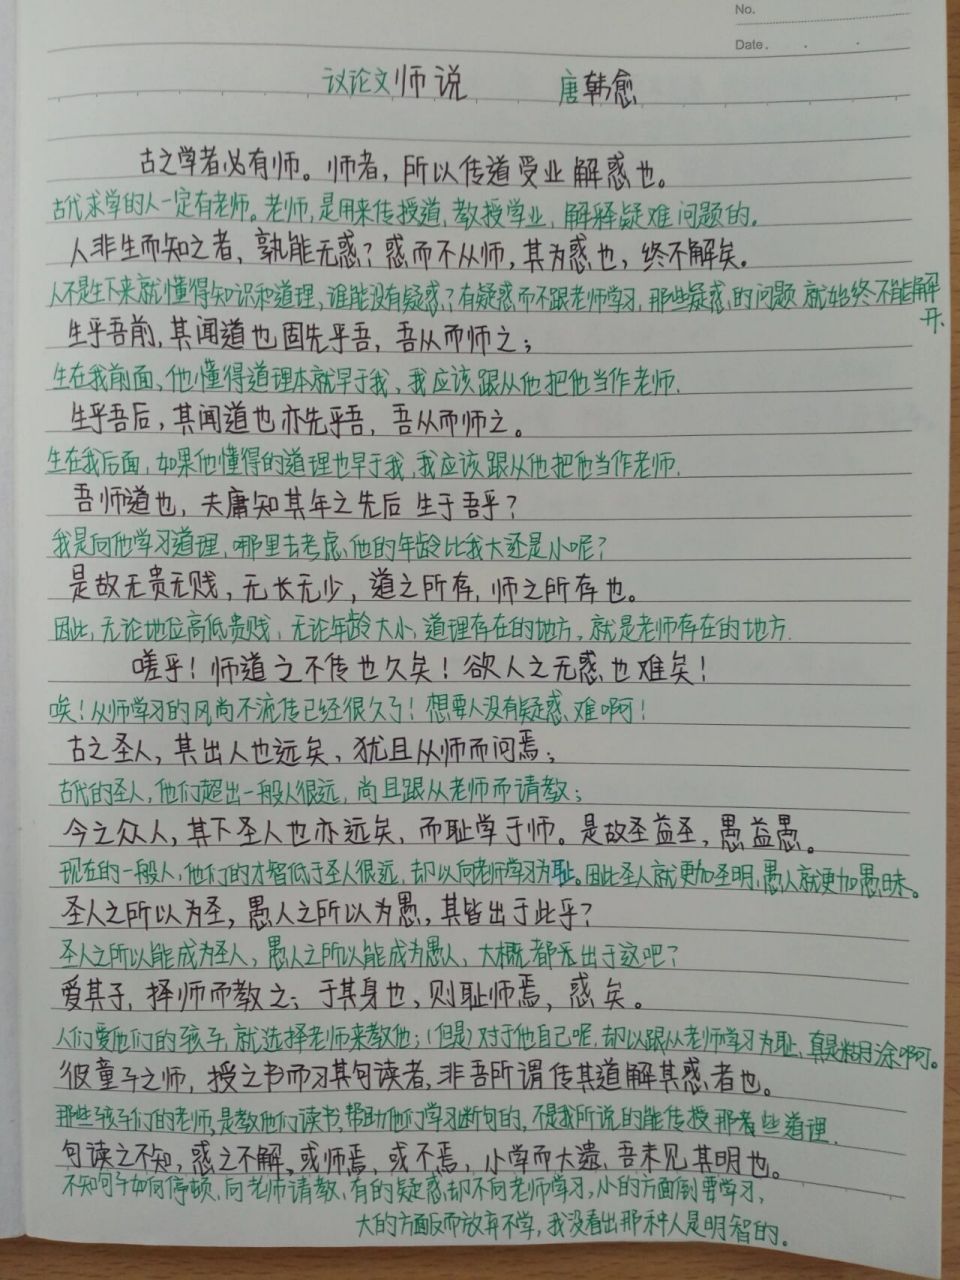 No.
Date.
议论文 师说 唐 韩愈
古之学者必有师。师者，所以传道受业解惑也。
古代求学的人一定有老师。老师，是用来传授道，教授学业，解释疑难问题的。
人非生而知之者，孰能无惑？惑而不从师，其为惑也，终不解矣。
人不是生下来就懂得知识和道理，谁能没有疑惑？有疑惑而不跟老师学习，那些疑惑的问题就始终不能解开.
生乎吾前，其闻道也固先乎吾，吾从而师之；
生在我前面，他懂得道理本就早于我，我应该跟从他把他当作老师.
生乎吾后，其闻道也亦先乎吾，吾从而师之。
生在我后面，如果他懂得的道理也早于我，我应该跟从他把他当作老师.
吾师道也，夫庸知其年之先后生于吾乎？
我是向他学习道理，哪里去考虑他的年龄比我大还是小呢？
是故无贵无贱，无长无少，道之所存，师之所存也。
因此，无论地位高低贵贱，无论年龄大小，道理存在的地方，就是老师存在的地方.
嗟乎！师道之不传也久矣！欲人之无惑也难矣！
唉！从师学习的风尚不流传已经很久了！想要人没有疑惑难啊！
古之圣人，其出人也远矣，犹且从师而问焉；
古代的圣人，他们超出一般人很远，尚且跟从老师而请教；
今之众人，其下圣人也亦远矣，而耻学于师。是故圣益圣，愚益愚。
现在的一般人，他们的才智低于圣人很远，却以向老师学习为耻。因此圣人就更加圣明，愚人就更加愚昧。
圣人之所以为圣，愚人之所以为愚，其皆出于此乎？
圣人之所以能成为圣人，愚人之所以能成为愚人，大概都是出于这吧？
爱其子，择师而教之；于其身也，则耻师焉，惑矣。
人们爱他们的孩子，就选择老师来教他；（但是）对于他自己呢，却以跟从老师学习为耻，真是糊涂啊。
彼童子之师，授之书而习其句读者，非吾所谓传其道解其惑者也。
那些孩子们的老师，是教他们读书，帮助他们学习断句的，不是我所说的能传授那些道理.
句读之不知，惑之不解，或师焉，或不焉，小学而大遗，吾未见其明也。
不知句子如何停顿，向老师请教，有的疑惑却不向老师学习，小的方面倒要学习，
大的方面反而放弃不学，我没看出那种人是明智的。